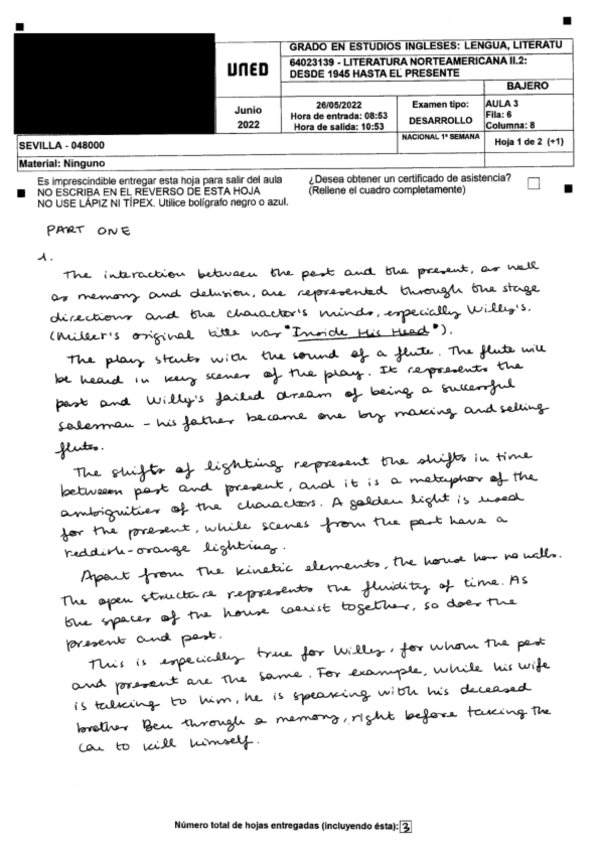 GRADO EN ESTUDIOS INGLESES: LENGUA, LITERATU
UNED
64023139 - LITERATURA NORTEAMERICANA II.2:
DESDE 1945 HASTA EL PRESENTE
BAJERO
Junio
2022
26/05/2022
Hora de entrada: 08:53
Hora de salida: 10:53
Examen tipo:
DESARROLLO
AULA 3
Fila: 6
Columna: 8
NACIONAL 1ª SEMANA
Hoja 1 de 2 (+1)
SEVILLA - 048000
Material: Ninguno
Es imprescindible entregar esta hoja para salir del aula
NO ESCRIBA EN EL REVERSO DE ESTA HOJA
NO USE LÁPIZ NI TÍPEX. Utilice bolígrafo negro o azul.
¿Desea obtener un certificado de asistencia?
(Rellene el cuadro completamente)
PART ONE
1.
The interaction between the past and the present, as well
as memory and delusion, are represented through the stage
directions and the character's minds, especially Willy's.
(Miller's original title was "Inside His Head").
The play starts with the sound of a flute. The flute will
be heard in key scenes of the play. It represents the
past and Willy's failed dream of being a successful
salesman - his father became one by making and selling
flutes.
The shifts of lighting represent the shifts in time
between past and present, and it is a metaphor of the
ambiguities of the characters. A golden light is used
for the present, while scenes from the past have a
reddish-orange lighting.
Apart from the kinetic elements, the house has no walls.
The open structure represents the fluidity of time. As
the spaces of the house coexist together, so does the
present and past.
This is especially true for Willy, for whom the past
and present are the same. For example, while his wife
is talking to him, he is speaking with his deceased
brother Ben through a memory, right before taking the
car to kill himself.
Número total de hojas entregadas (incluyendo ésta): 3